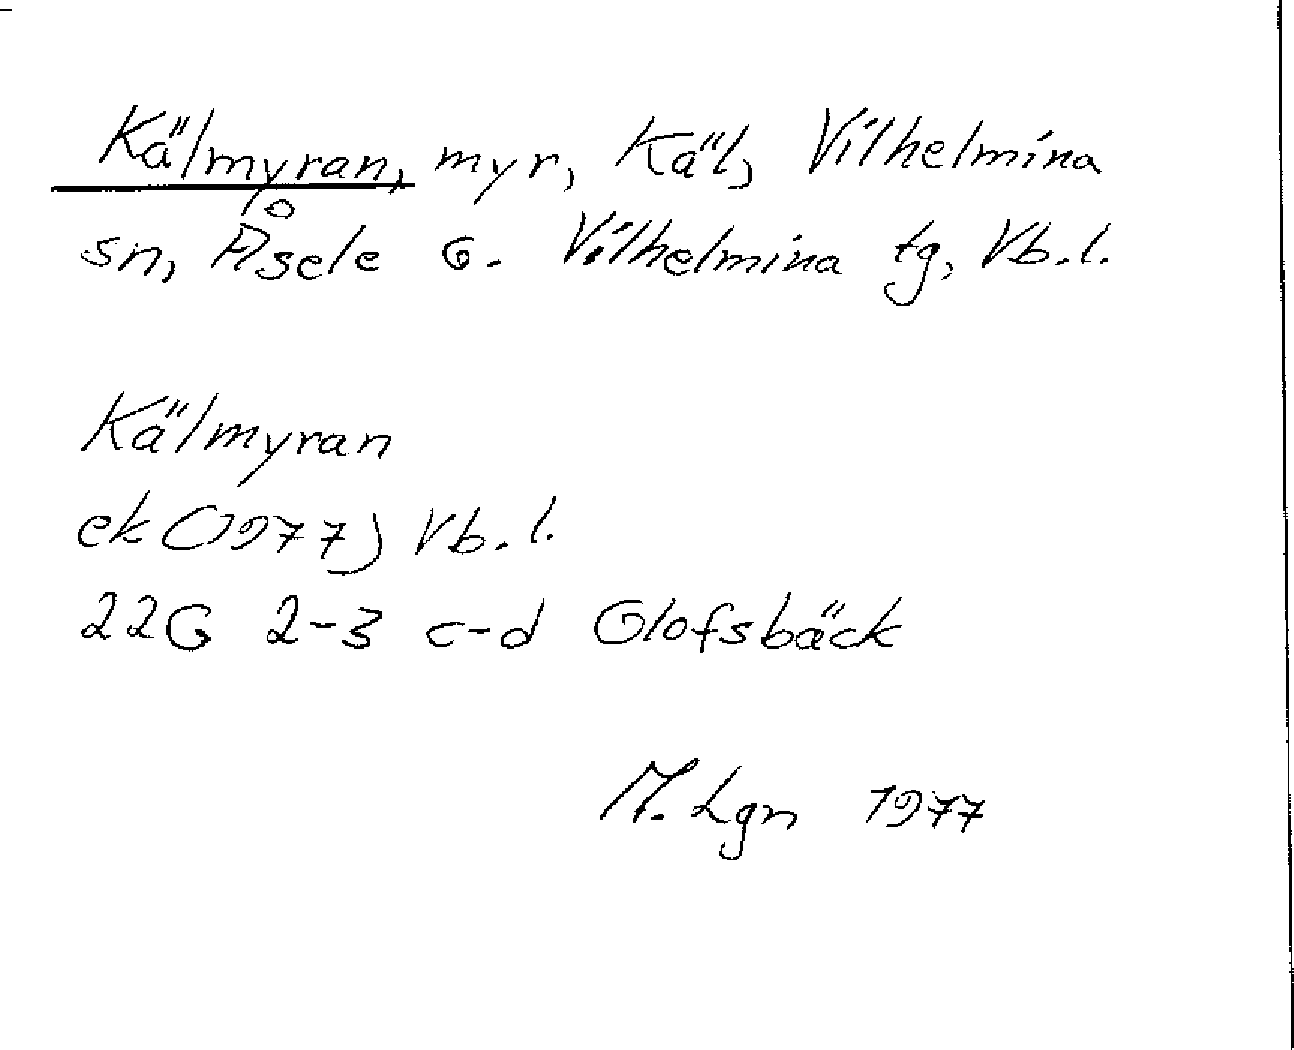 Kälmyran, myr, Käl, Vilhelmina
sn, Åsele o. Vilhelmina tg, Vb.l.
Kälmyran
ek (1977) Vb.l.
22G 2-3 c-d Olofsbäck
M. Lgn 1977